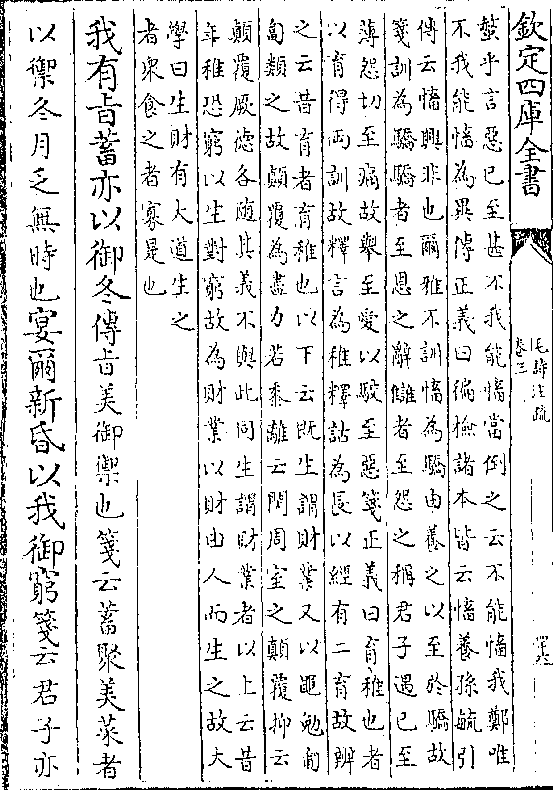 欽定四庫全書
毛詩注疏
卷三
蓥乎言惡已至甚不我能慉當倒之云不能慉我鄭唯
不我能慉為異傳正義曰徧檢諸本皆云慉養孫毓引
傳云慉興非也爾雅不訓慉為驕由養之以至於驕故
箋訓為驕驕者至恩之辭讎者至怨之稱君子遇已至
薄怨切至痛故舉至愛以駮至惡箋正義曰育稚也者
以育得兩訓故釋言為稚釋詁為長以經有二育故辨
之云昔育者育稚也以下云既生謂財業又以黽勉匍
匐類之故顛覆為盡力若黍離云閔周室之顛覆抑云
顛覆厥德各隨其義不與此同生謂財業者以上云昔
年稚恐窮以生對窮故為財業以財由人而生之故大
學曰生財有大道生之
者衆食之者寡是也
我有旨蓄亦以御冬傳旨美御禦也箋云蓄聚美菜者
以禦冬月乏無時也宴爾新昏以我御窮箋云君子亦